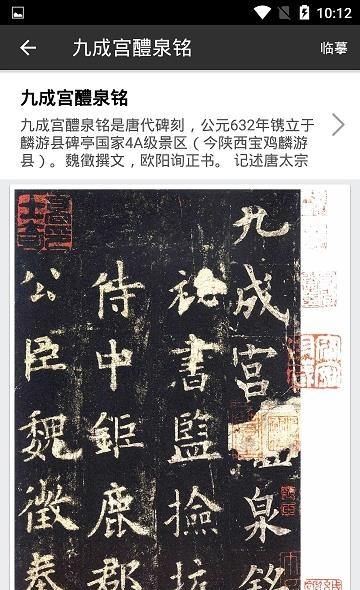 10:12
九成宫醴泉铭
临摹
九成宫醴泉铭
九成宫醴泉铭是唐代碑刻，公元632年镌立于
麟游县碑亭国家4A级景区（今陕西宝鸡麟游
县）。魏徵撰文，欧阳询正书。 记述唐太宗
九成宮醴泉銘
祕書監撿挍
侍中鉅鹿郡
公臣魏徵奉